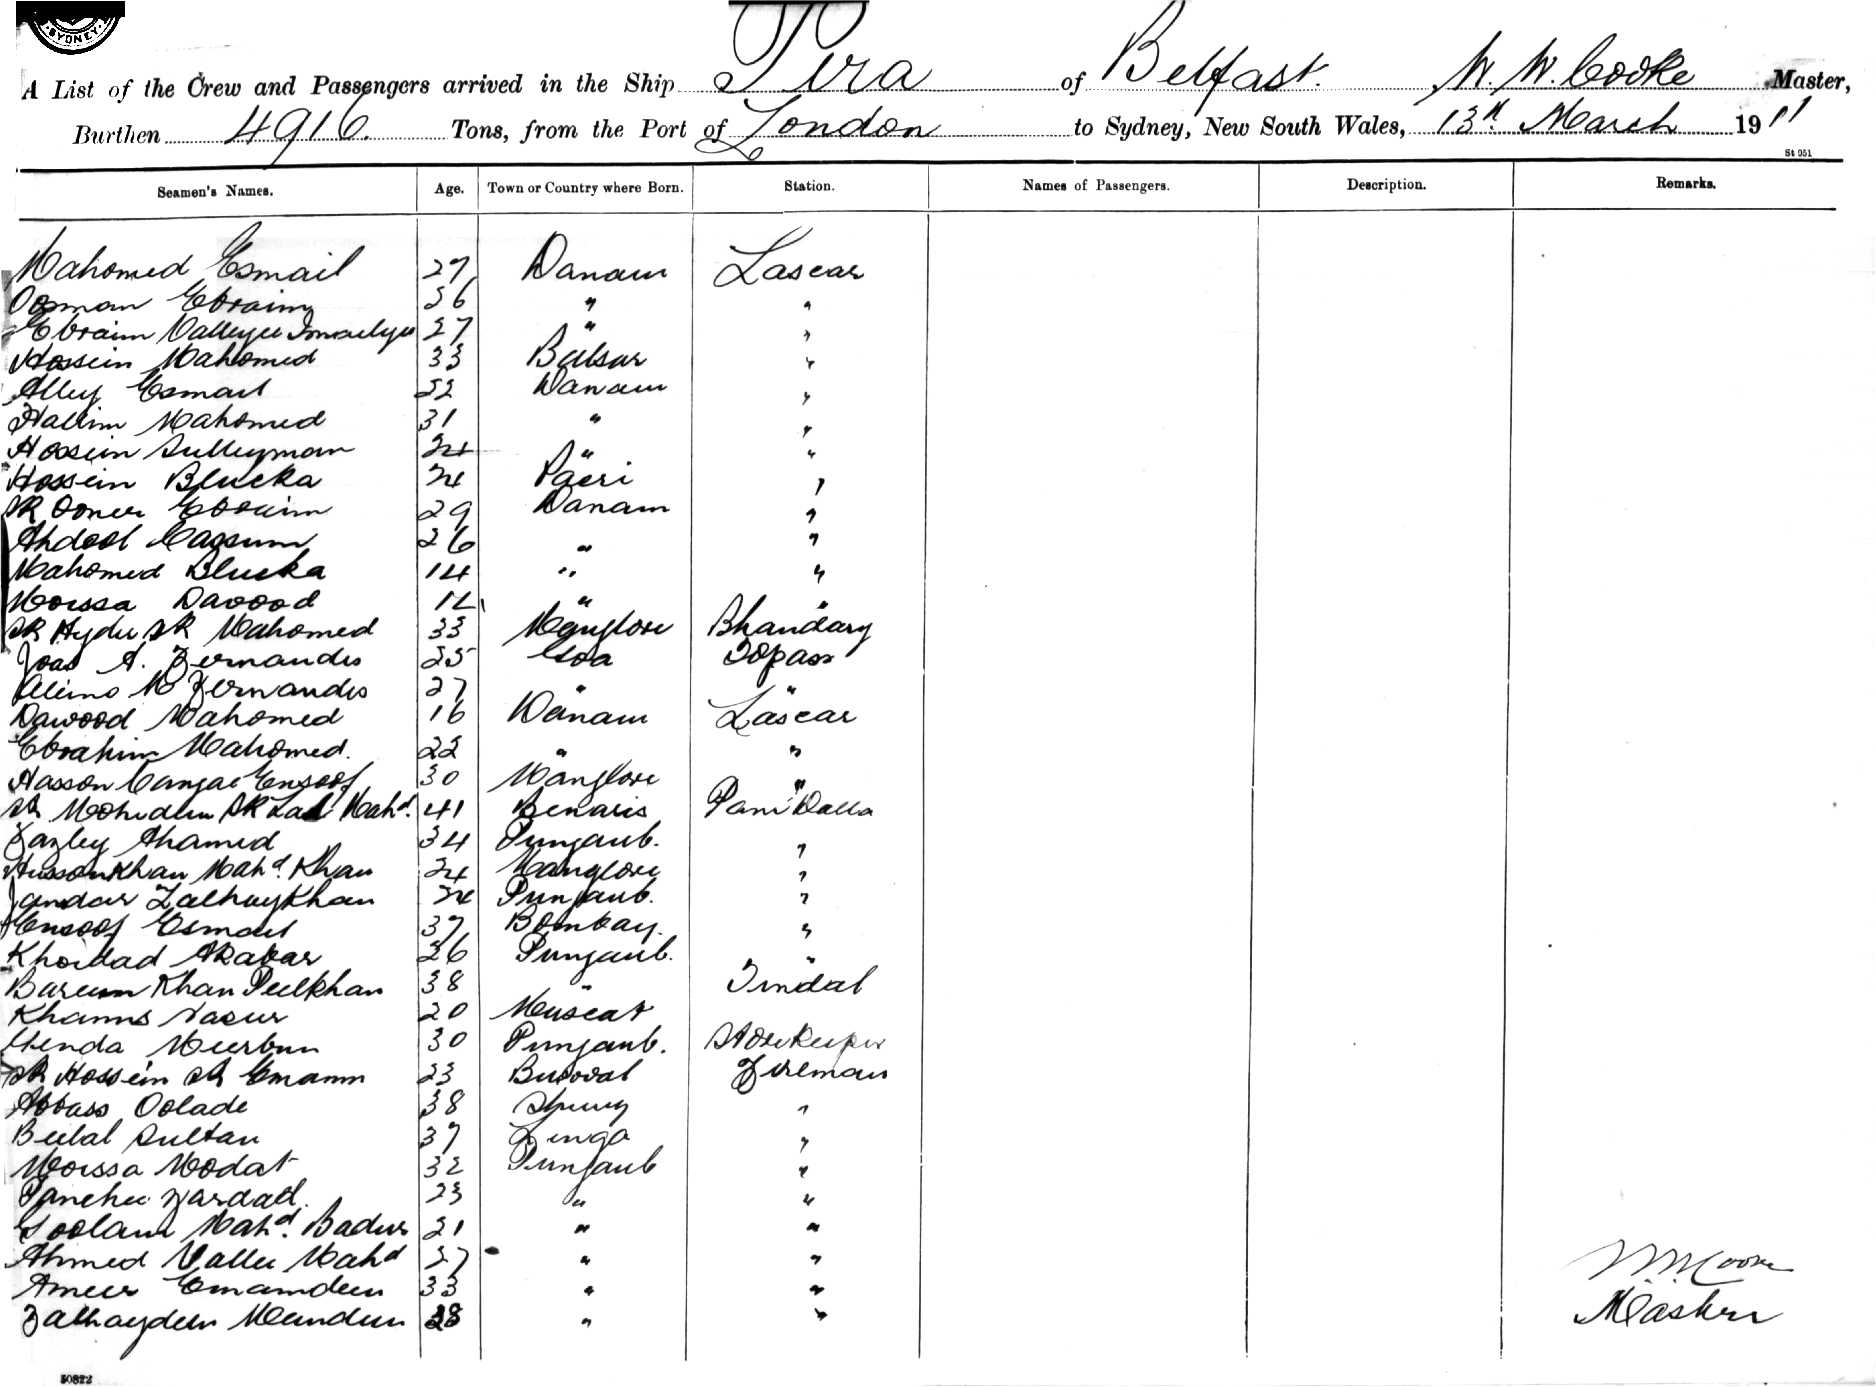 SYDNEY
A List of the Crew and Passengers arrived in the Ship Pera of Belfast. W. W. Cooke Master,
Burthen 4916. Tons, from the Port of London to Sydney, New South Wales, 13th March 1911
St 951
Seamen's Names. Age. Town or Country where Born. Station. Names of Passengers. Description. Remarks.
Mahomed Esmail 27 Danam Lascar
Oosman Ebraim 36 " "
Ebraim Valleyee Ismaelyee 27 " "
Hossein Mahomed 33 Bulsar "
Alley Esmail 22 Danam "
Hallim Mahomed 31 " "
Hossein Sulleyman 24 " "
Hossein Blucka 24 "
SK Oomer Ebraim 29 Danam "
Abdool Cassum 26 " "
Mahomed Blucka 14 " "
Moussa Davood 12 " "
SK Hyder SK Mahomed 33 Manglore Bhandary
Joao A. Fernandes 25 Goa Topass
M Fernandes 27 " "
Dawood Mahomed 16 Danam Lascar
Ebrahim Mahomed. 22 " "
Hasson Esoof 30 Manglore "
SK Mohideen SK Lal Mahd. 41 Benaris Pani Walla
Fazley Ahamed 34 Punjaub. "
Hussonkhan Mahd. Khan 24 Manglore "
Jandar Zalhuykhan 24 Punjaub. "
Essoof Esmail 37 Bombay. "
Khoidad Akabar 26 Punjaub. "
Khan Peelkhan 38 " Tindal
Khamis Nasur 20 Muscat
Genda Meerbun 30 Punjaub. Storekeeper
SK Hossein SK Emamm 23 Fireman
Abbass Oolade 38 "
Beelal Sultan 37 Linga "
Moussa Modat 32 Punjaub "
Zardad. 23 " "
Goolam Mahd. Badur 21 " "
Ahmed Vallee Mahd 27 " "
Ameer Emamdeen 33 " "
28 " "
W.W. Cooke
Master
50822